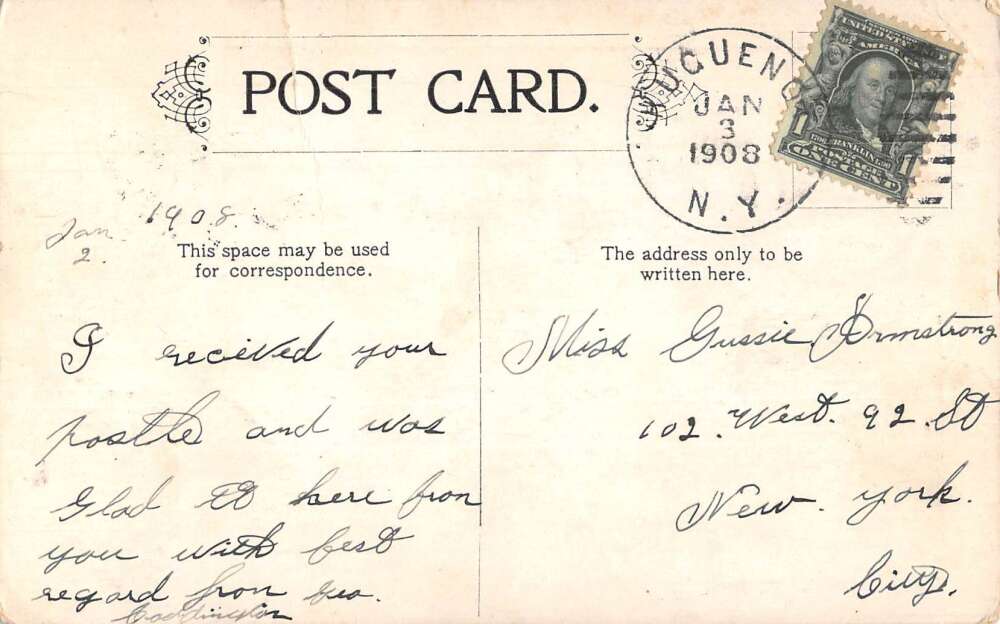 POST CARD.
UQUEN
JAN
3
1908
N.Y.
UNITED STATES
AMERICA
1
FRANKLIN
ONE CENT
1
Jan 1908.
2.
This space may be used
for correspondence.
I received your
postle and was
Glad to here fron
you with best
regard fron Geo.
Coddington
The address only to be
written here.
Miss Gussie Armstrong
102. West. 92. St
New. york.
City.